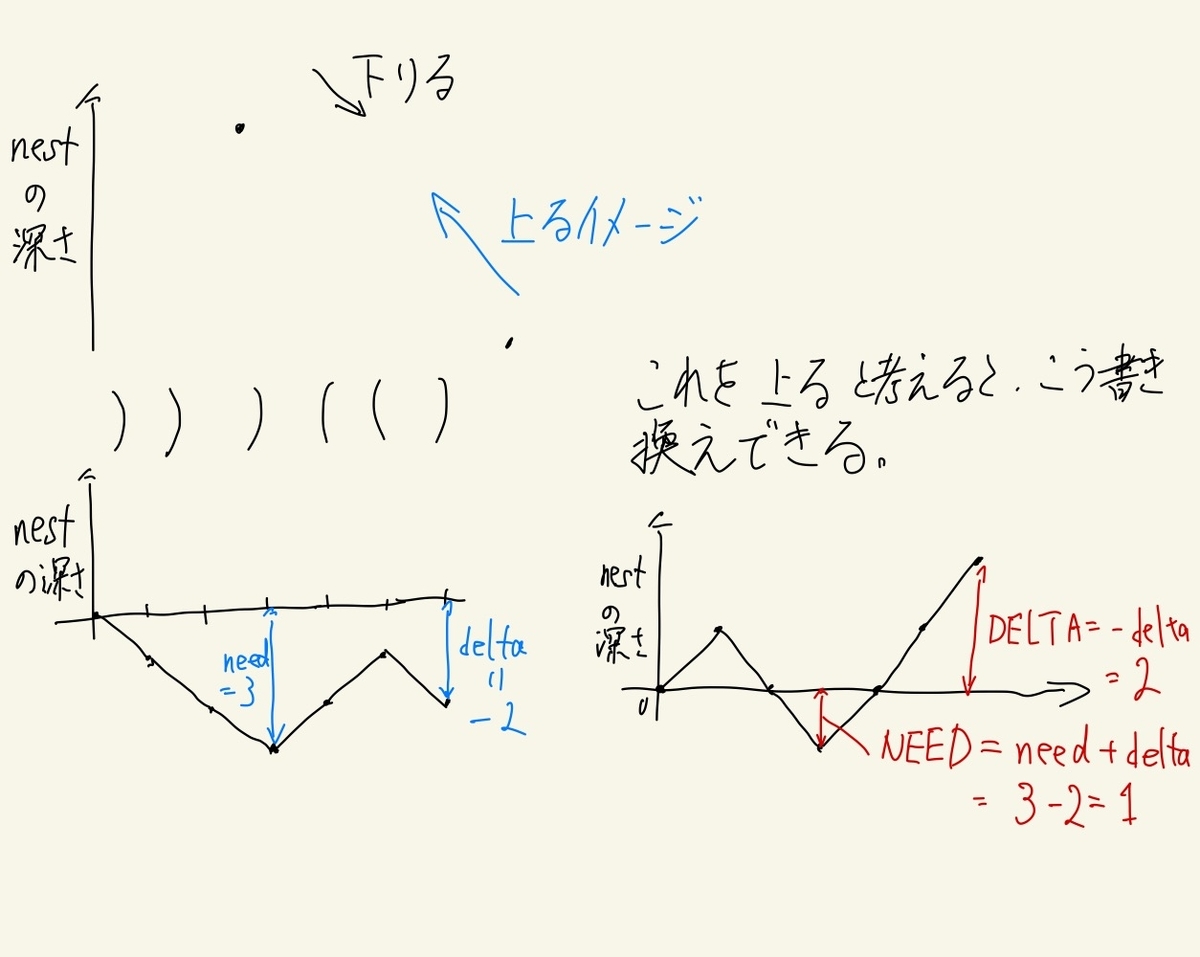 下りる
nest
の
深さ
上るイメージ
これを上ると考えると、こう書き
換えできる。
) ) ) ( ( )
nest
の深さ
need
=3
delta
=
-2
nest
の
深さ
0
DELTA=-delta
=2
NEED=need+delta
=3-2=1